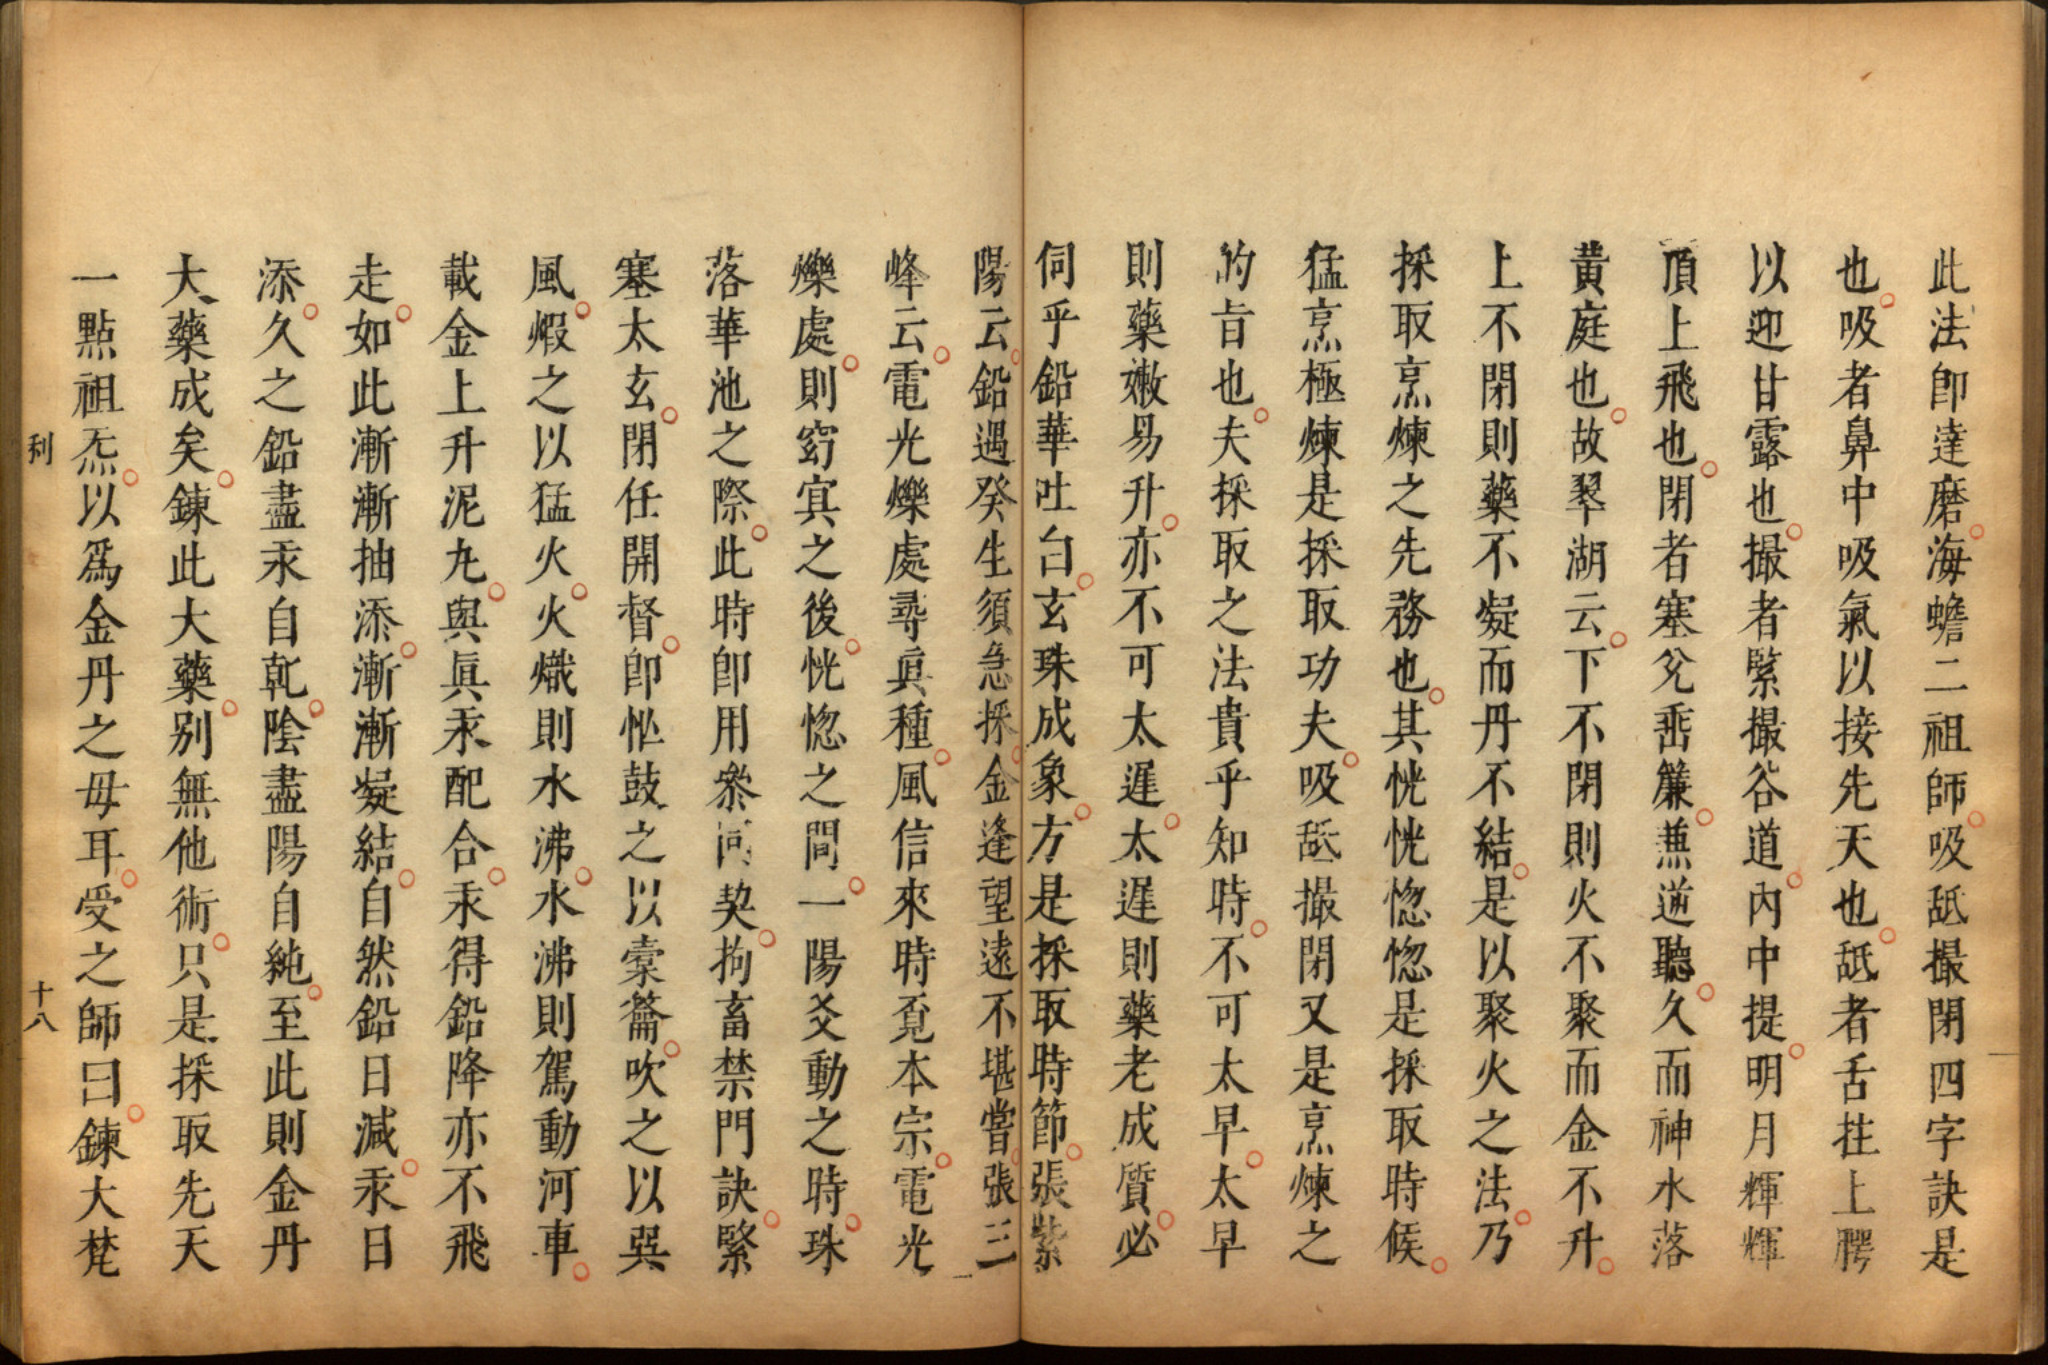 此法卽達磨海蟾二祖師吸舐撮閉四字訣是
也吸者鼻中吸氣以接先天也舐者舌拄上腭
以迎甘露也撮者緊撮谷道內中提明月輝輝
頂上飛也閉者塞兊垂簾兼逆聽久而神水落
黃庭也故翠湖云下不閉則火不聚而金不升
上不閉則藥不凝而丹不結是以聚火之法乃
採取烹煉之先務也其恍恍惚惚是採取時候
猛烹極煉是採取功夫吸舐撮閉又是烹煉之
的旨也夫採取之法貴乎知時不可太早太早
則藥嫩易升亦不可太遲太遲則藥老成質必
伺乎鉛華吐白玄珠成象方是採取時節張紫
陽云鉛遇癸生須急採金逢望遠不堪嘗張三
峰云電光爍處尋眞種風信來時覔本宗電光
爍處則窈冥之後恍惚之間一陽爻動之時珠
落華池之際此時卽用叅同契拘畜禁門訣緊
塞太玄閉任開督卽怭鼓之以橐籥吹之以巽
風煆之以猛火火熾則水沸水沸則駕動河車
載金上升泥丸與眞汞配合汞得鉛降亦不飛
走如此漸漸抽添漸漸凝結自然鉛日減汞日
添久之鉛盡汞自乾陰盡陽自純至此則金丹
大藥成矣鍊此大藥别無他術只是採取先天
一點祖炁以爲金丹之母耳受之師曰鍊大梵
利
十八